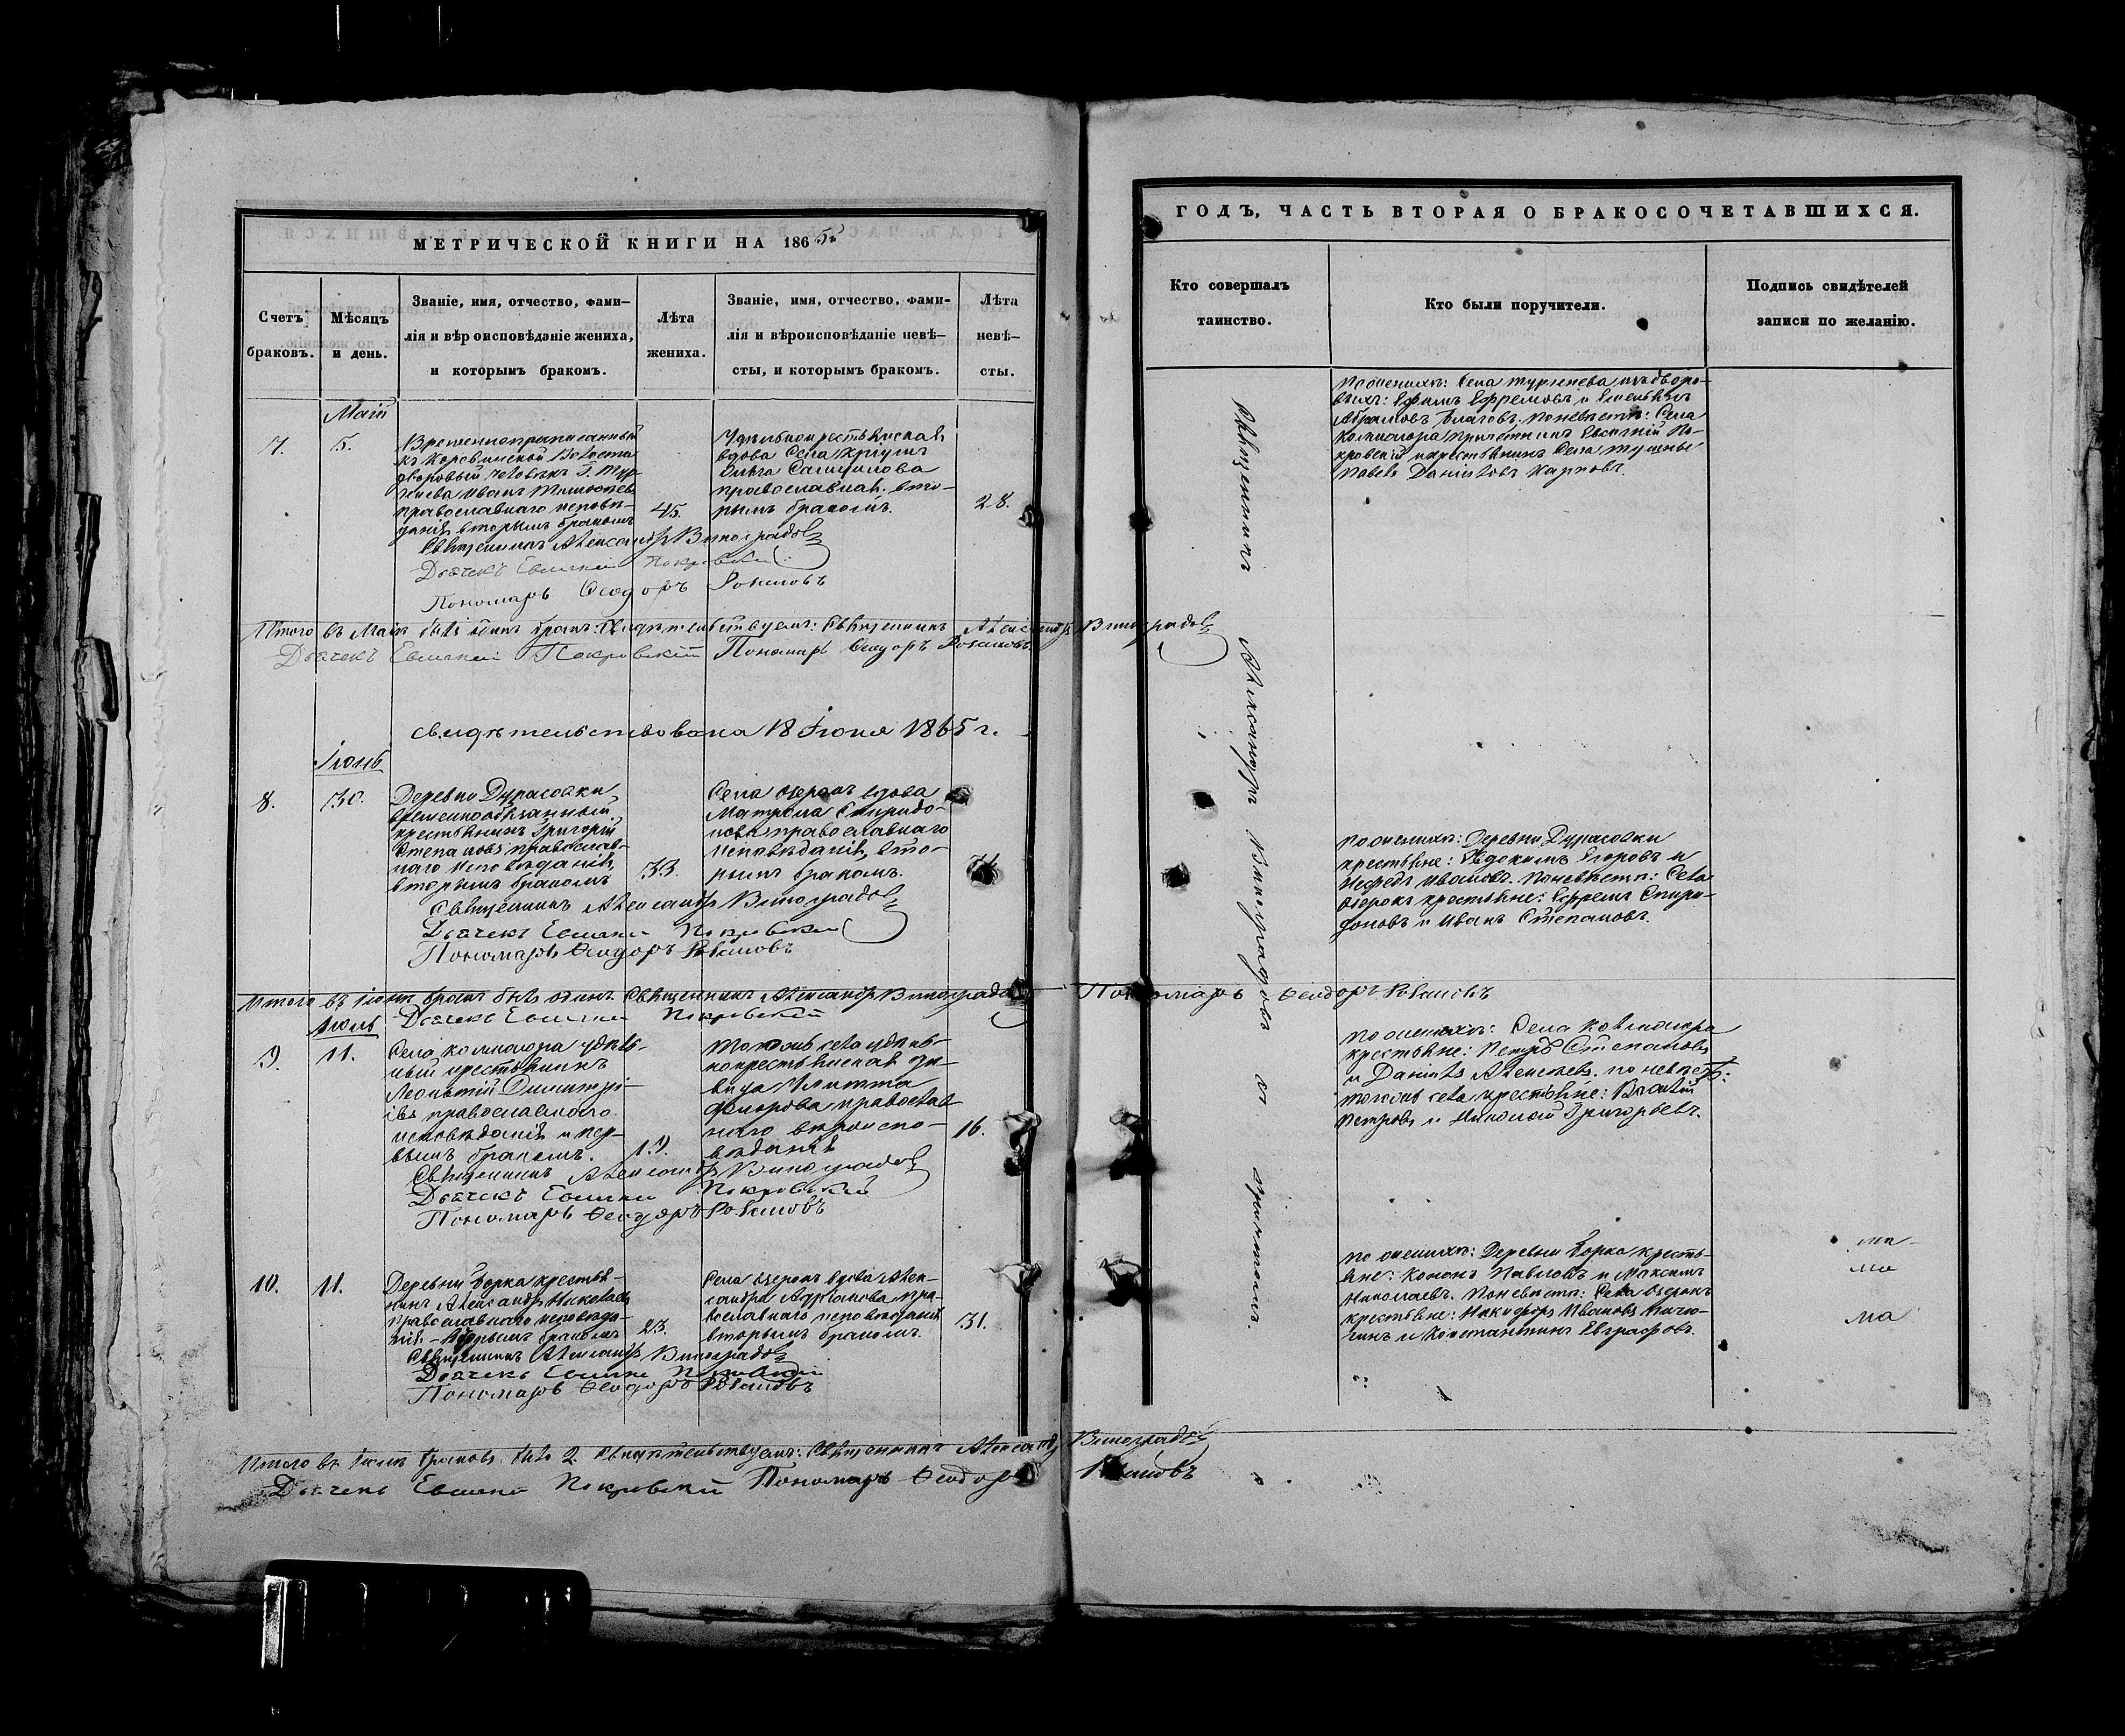 МЕТРИЧЕСКОЙ КНИГИ НА 1865й
Счетъ браковъ.
Мѣсяцъ и день.
Званіе, имя, отчество, фами-
лія и вѣроисповѣданіе жениха,
и которымъ бракомъ.
Лѣта жениха.
Званіе, имя, отчество, фами-
лія и вѣроисповѣданіе невѣ-
сты, и которымъ бракомъ.
Лѣта невѣ-
сты.
Май
7.
5.
Временноприписанный
къ Коровинской Волости
дворовый человѣкъ Г. Тур-
генева Иванъ
православнаго исповѣ-
данія, вторымъ бракомъ
45.
Удѣльнокрестьянская
вдова Села
православная, вто-
рымъ бракомъ.
28.
Священникъ Александръ Виноградовъ
Дьячекъ Евгений Покровский
Пономарь Ѳеодоръ Розановъ
Итого въ Маѣ былъ одинъ бракъ. Свидѣтельствуемъ: Священникъ Александръ Виноградовъ
Дьячекъ Евгений Покровский Пономарь Ѳеодоръ Розановъ
Свидѣтельствована 18 Іюня 1865 г.
Іюнь
8.
30.
Деревни Дурасовки
временнообязанный
крестьянинъ Григорій
Степановъ православ-
наго исповѣданія,
вторымъ бракомъ
33.
Села Озерокъ вдова
Матрона Спиридо-
нова православнаго
исповѣданія, вто-
рымъ бракомъ.
Священникъ Александръ Виноградовъ
Дьячекъ Евгений Покровский
Пономарь Ѳеодоръ Розановъ
Итого въ Іюнѣ бракъ былъ одинъ. Священникъ Александръ Виноградовъ Пономарь Ѳеодоръ Розановъ
Дьячекъ Евгений Покровский
Іюль
9.
11.
Села удѣль-
ный крестьянинъ
Леонтій Димитрі-
евъ православнаго
исповѣданія и пер-
вымъ бракомъ.
19.
Тогожъ села удѣль-
нокрестьянская дѣ-
вица
православ-
наго вѣроиспо-
вѣданія
16.
Священникъ Александръ Виноградовъ
Дьячекъ Евгений Покровский
Пономарь Ѳеодоръ Розановъ
10.
11.
Деревни Борка крестья-
нинъ Александръ Николаевъ
православнаго исповѣда-
нія – вторымъ бракомъ
23.
Села Озерокъ вдова Алек-
сандра Адріанова, пра-
вославнаго исповѣданія
вторымъ бракомъ.
31.
Священникъ Александръ Виноградовъ
Дьячекъ Евгений Покровский
Пономарь Ѳеодоръ Розановъ
Итого въ Іюлѣ браковъ было 2. Свидѣтельствуемъ: Священникъ Александръ Виноградовъ
Дьячекъ Евгений Покровский Пономарь Ѳеодоръ Розановъ
ГОДЪ, ЧАСТЬ ВТОРАЯ О БРАКОСОЧЕТАВШИХСЯ.
Кто совершалъ
таинство.
Кто были поручители.
Подпись свидѣтелей
записи по желанію.
Священникъ Александръ Виноградовъ съ причтомъ.
По женихѣ: Села Тургенева изъ дворо-
выхъ: Ефимъ Ефремовъ и
Абрамовъ. По невѣстѣ: Села
причетникъ Евгений По-
кровскій и крестьянинъ Села
Павелъ Даниловъ Карповъ.
По женихѣ: Деревни Дурасовки
крестьяне: Евдокимъ Егоровъ и
Нефедъ Ивановъ. По невѣстѣ: Села
Озерокъ крестьяне: Ефремъ Спири-
доновъ и Иванъ Степановъ.
По женихѣ: Села
крестьяне: Петръ Степановъ
и Данилъ Алексѣевъ. По невѣстѣ:
тогожъ села крестьяне: Василій
Петровъ и Николай Григорьевъ.
По женихѣ: Деревни Борка кресть-
яне: Кононъ Павловъ и Максимъ
Николаевъ. По невѣстѣ: Села Озерокъ
крестьяне: Никифоръ Ивановъ
и Константинъ Евграфовъ.